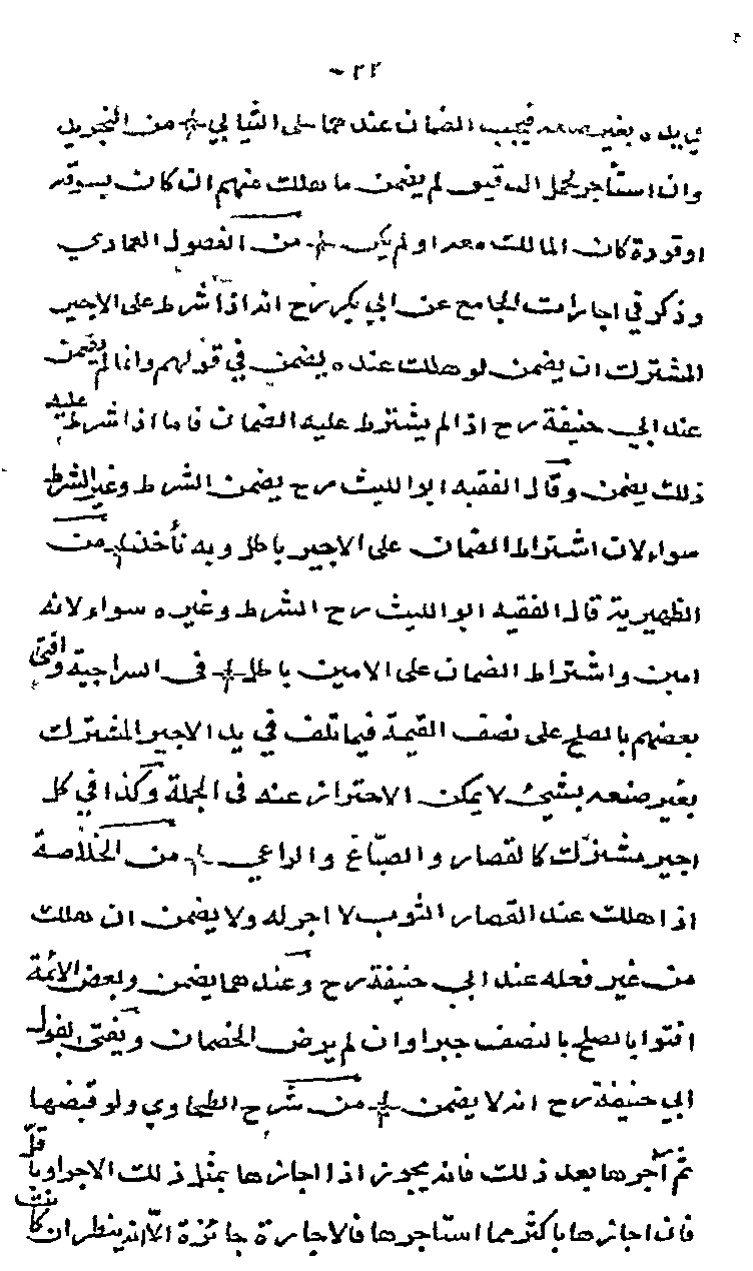 - ٢٢
بيده بغير صنعه فيجب الضمان عندهما على الثاني من التجريد
وان استأجر لحمل الدقيق لم يضمن ما هلك عنهم ان كان يسوقه
او قوده كان المالك معه او لم يكن من الفصول العمادي
وذكر في اجارات الجامع عن ابي بكر رح انه اذا شرط على الاجير
المشترك ان يضمن لو هلك عنده يضمن في قولهم وانما لم يضمن
عند ابي حنيفة رح اذا لم يشترط عليه الضمان فاما اذا شرط عليه
ذلك يضمن وقال الفقيه ابو الليث رح يضمن الشرط وغير الشرط
سواء لان اشتراط الضمان على الاجير باطل وبه نأخذ من
الظهيرية قال الفقيه ابو الليث رح الشرط وغيره سواء لانه
امين واشتراط الضمان على الامين باطل في السراجية وافتى
بعضهم بالصلح على نصف القيمة فيما تلف في يد الاجير المشترك
بغير صنعه بشيئ لا يمكن الاحتراز عنه في الجملة وكذا في كل
اجير مشترك كالقصار والصباغ والراعي من الخلاصة
اذا هلك عند القصار الثوب لا اجر له ولا يضمن ان هلك
من غير فعله عند ابي حنيفة رح وعندهما يضمن وبعض الائمة
افتوا بالصلح بالنصف جبرا وان لم يرض الخصمان ويفتى بقول
ابي حنيفة رح انه لا يضمن من شرح الطحاوي ولو قبضها
ثم آجرها بعد ذلك فانه يجوز اذا اجازها بمثل ذلك الاجر او باقل
فان اجازها باكثر مما استأجرها فالاجارة جائزة الا انه ينظر ان كانت